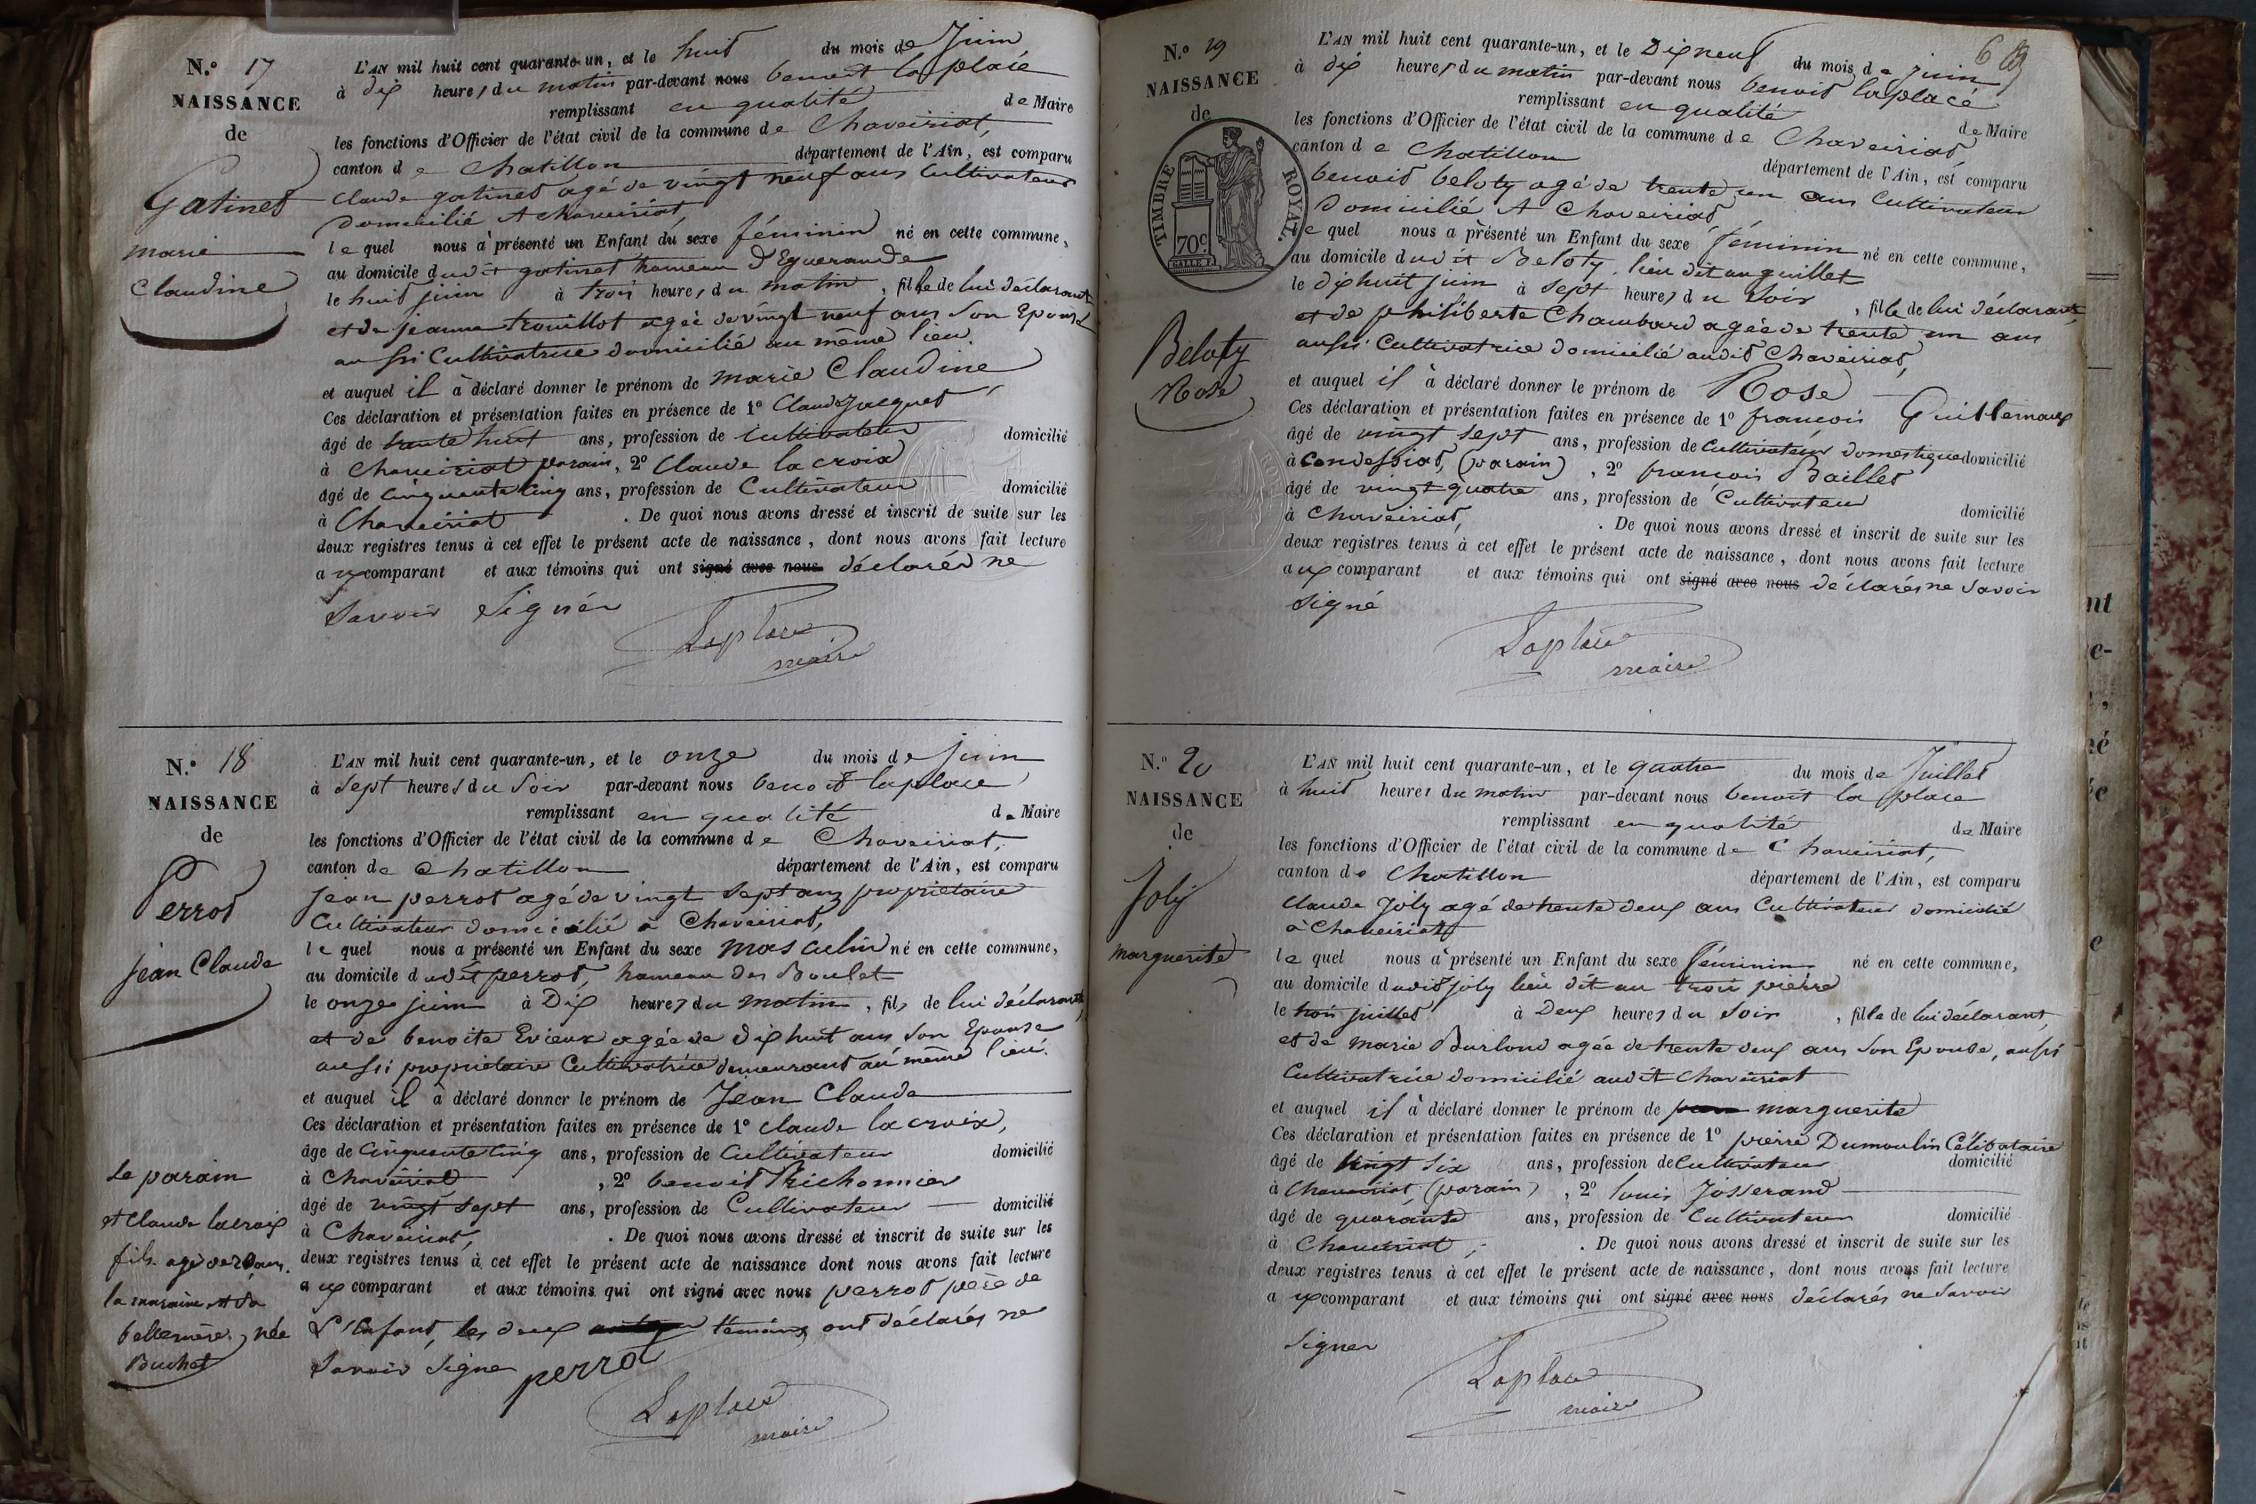 N.° 17
NAISSANCE
de
Gatinet
marie
Claudine
L'AN mil huit cent quarante-un, et le huit du mois de Juin
à dix heures du matin par-devant nous benoit la place
remplissant en qualité de Maire
les fonctions d'Officier de l'état civil de la commune de Chaveiriat,
canton de Chatillon département de l'Ain, est comparu
Claude gatinet agé de vingt neuf ans Cultivateur
Domicilié A chaveiriat,
le quel nous a présenté un Enfant du sexe féminin né en cette commune,
au domicile dudit gatinet hameau D'Eguerande
le huit juin à trois heures du matin, fille de lui déclarant
et de jeanne trouillot agée de vingt neuf ans Son Epouse
aussi Cultivatrice domicilié au même lieu.
et auquel il a déclaré donner le prénom de marie Claudine
Ces déclaration et présentation faites en présence de 1° Claude Jacquet
âgé de trente huit ans, profession de Cultivateur domicilié
à Chaveiriat parain, 2° Claude la croix
âgé de Cinquante Cinq ans, profession de Cultivateur domicilié
à Chaveiriat. De quoi nous avons dressé et inscrit de suite sur les
deux registres tenus à cet effet le présent acte de naissance, dont nous avons fait lecture
aux comparant et aux témoins qui ont signé avec nous déclarés ne
Savoir Signér
Laplace
maire
N.° 18
NAISSANCE
de
Perrot
jean Claude
Le parain
et Claude lacroix
fils agé de 20 ans.
la maraine et sa
belle mère, née
Buchet
L'AN mil huit cent quarante-un, et le onze du mois de juin
à Sept heures du Soir par-devant nous benoit laplace
remplissant en qualité de Maire
les fonctions d'Officier de l'état civil de la commune de Chaveiriat,
canton de Chatillon département de l'Ain, est comparu
Jean perrot agé de vingt Sept ans proprietaire
Cultivateur domicilié a Chaveiriat,
le quel nous a présenté un Enfant du sexe masculin né en cette commune,
au domicile dudit perrot, hameau des Boulet
le onze juin à Dix heures du matin, fils de lui déclarant,
et de benoite Evieux agée de dix huit ans Son Epouse
aussi propriétaire Cultivatrice demeurant au même lieu.
et auquel il a déclaré donner le prénom de Jean Claude
Ces déclaration et présentation faites en présence de 1° claude la croix,
âge de Cinquante Cinq ans, profession de Cultivateur domicilié
à Chaveiriat, 2° benoit Trichonnier
âgé de vingt Sept ans, profession de Cultivateur domicilié
à Chaveiriat, . De quoi nous avons dressé et inscrit de suite sur les
deux registres tenus à cet effet le présent acte de naissance dont nous avons fait lecture
aux comparant et aux témoins qui ont signé avec nous perrot père de
L'Enfant, les deux témoins ont déclarés ne
Savoir Signer perrot
Laplace
maire
N.° 19
NAISSANCE
de
TIMBRE ROYAL.
70c
Beloty
Rose
6
L'AN mil huit cent quarante-un, et le Dix neuf du mois de juin
à dix heures du matin par-devant nous benoit laplace
remplissant en qualité de Maire
les fonctions d'Officier de l'état civil de la commune de Chaveiriat,
canton de Chatillon département de l'Ain, est comparu
benoit beloty agé de trente un ans Cultivateur
Domicilié A Chaveiriat
le quel nous a présenté un Enfant du sexe féminin né en cette commune,
au domicile dudit Beloty, lieu dit au guillet
le dix huit juin à Sept heures du Soir, fille de lui déclarant,
et de philiberte Chambard agée de trente un ans
aussi Cultivatrice domicilié audit Chaveiriat,
et auquel il a déclaré donner le prénom de Rose
Ces déclaration et présentation faites en présence de 1° francois Guillemaux
âgé de vingt sept ans, profession de Cultivateur domestique domicilié
à Condessiat, (parain), 2° francois Baillet
âgé de vingt quatre ans, profession de Cultivateur domicilié
à Chaveiriat, . De quoi nous avons dressé et inscrit de suite sur les
deux registres tenus à cet effet le présent acte de naissance, dont nous avons fait lecture
aux comparant et aux témoins qui ont signé avec nous déclarés ne Savoir
Signé
Laplace
maire
N.° 20
NAISSANCE
de
Joly
marguerite
L'AN mil huit cent quarante-un, et le quatre du mois de Juillet
à huit heures du matin par-devant nous benoit la place
remplissant en qualité de Maire
les fonctions d'Officier de l'état civil de la commune de Chaveiriat,
canton de Chatillon département de l'Ain, est comparu
Claude Joly agé de trente deux ans Cultivateur domicilié
à Chaveiriat
le quel nous a présenté un Enfant du sexe féminin né en cette commune,
au domicile dudit Joly lieu dit au trois pierre
le trois juillet à Deux heures du Soir, fille de lui déclarant,
et de Marie Burloud agée de trente deux ans Son Epouse, aussi
Cultivatrice domicilié audit Chaveiriat
et auquel il a déclaré donner le prénom de marguerite
Ces déclaration et présentation faites en présence de 1° pierre Dumoulin Célibataire
âgé de vingt six ans, profession de Cultivateur domicilié
à Chaveiriat (parain), 2° louis Josserand
âgé de quarante ans, profession de Cultivateur domicilié
à Chaveiriat, . De quoi nous avons dressé et inscrit de suite sur les
deux registres tenus à cet effet le présent acte de naissance, dont nous avons fait lecture
aux comparant et aux témoins qui ont signé avec nous déclarés ne Savoir
Signer
Laplace
maire